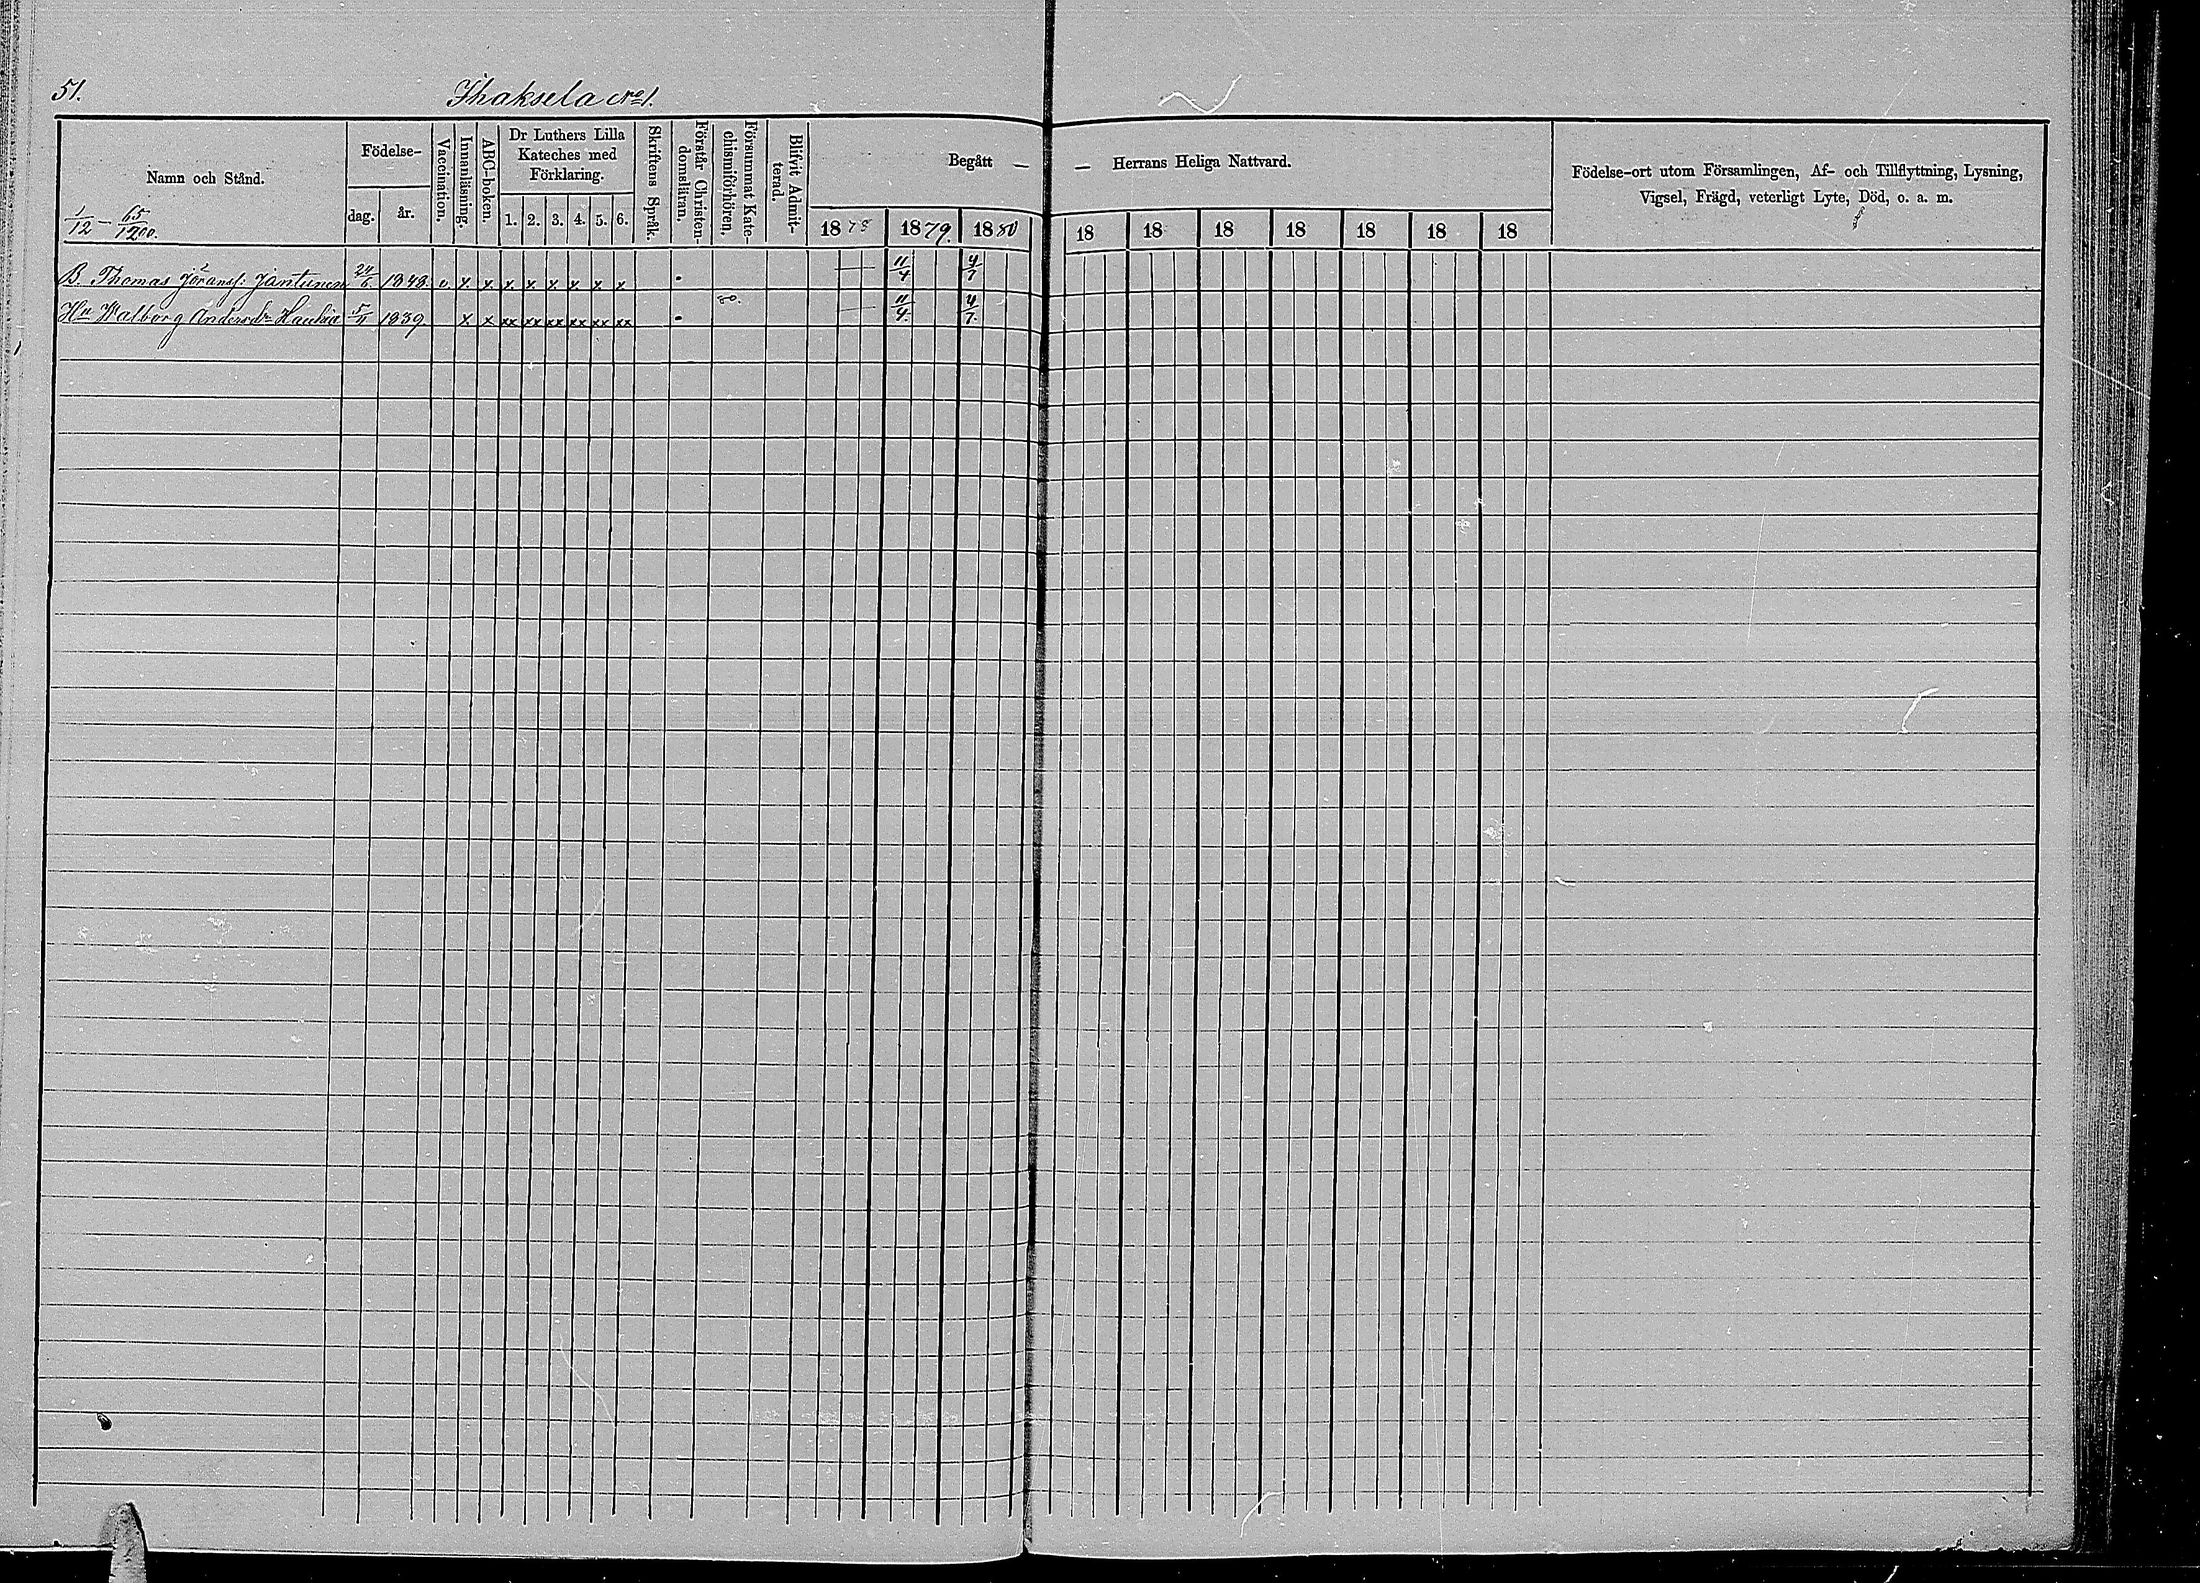 51. Ihaksela No 1.
Namn och Stånd. Födelse- dag. år. Vaccination. Innanläsning. ABC-boken. Dr Luthers Lilla Kateches med Förklaring. 1. 2. 3. 4. 5. 6. Skriftens Språk. Förstår Christen-domsläran. Försummat Kate-chismiförhören. Blifvit Admit-terad. Begått — — Herrans Heliga Nattvard. Födelse-ort utom Församlingen, Af- och Tillflyttning, Lysning,
Vigsel, Frägd, veterligt Lyte, Död, o. a. m.
1/12 — 65/1200. 1878 1879. 1880 18 18 18 18 18 18 18
B. Thomas Jöransf: Jantunen 24/6 1843. v. x. x x. x x. x. x. x 11/4 4/7
Hu Walborg Andersdr Haukia 5/11 1839. x x xx xx xx xx xx xx 80. 11/4. 4/7.